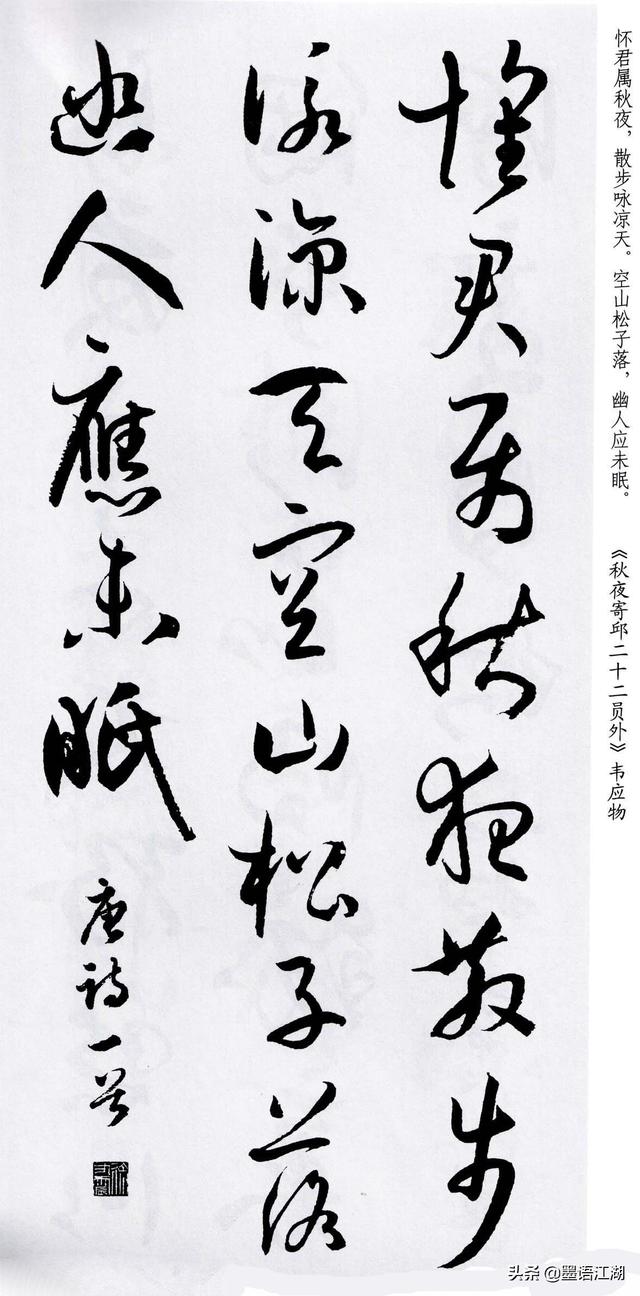 怀君属秋夜，散步咏凉天。空山松子落，幽人应未眠。 《秋夜寄邱二十二员外》韦应物
懷君属秋夜散步
詠涼天空山松子落
幽人應未眠
唐詩一首
头条 @墨语江湖